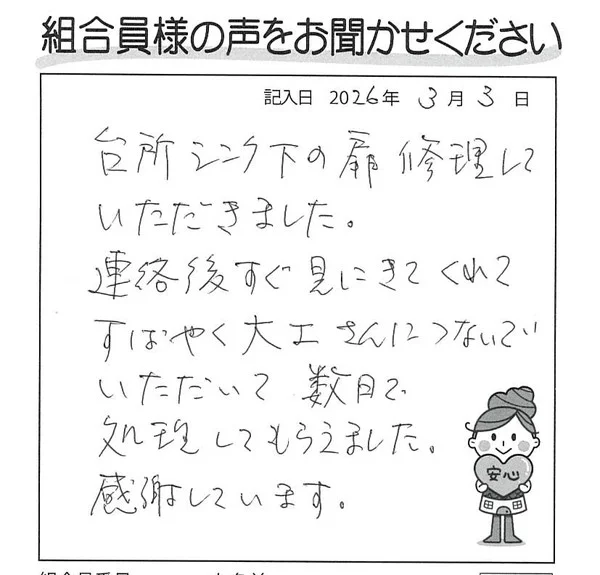 組合員様の声をお聞かせください
記入日 2026年 3月 3日
台所シンク下の扉 修理して
いただきました。
連絡後すぐ見にきてくれて
すばやく大工さんにつないで
いただいて 数日で
処理してもらえました。
感謝しています。
安心